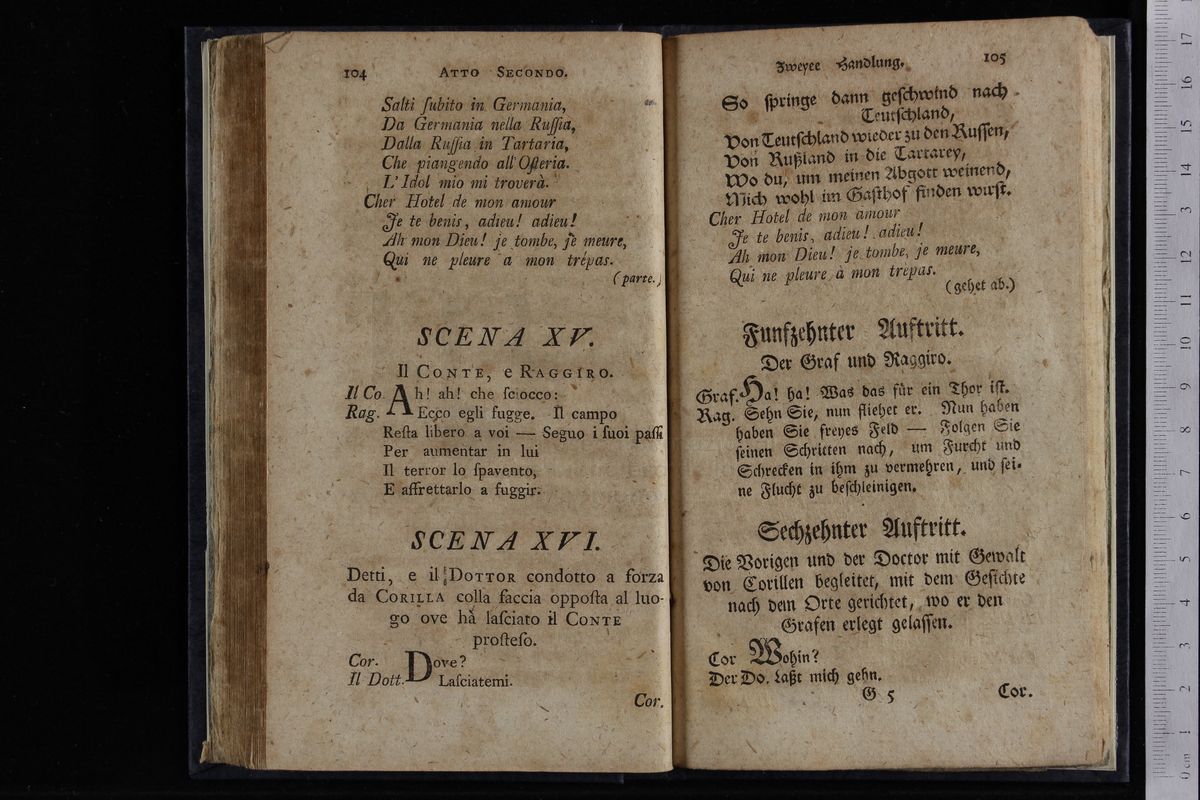 104 ATTO SECONDO.
Salti ſubito in Germania,
Da Germania nella Ruſſia,
Dalla Ruſſia in Tartaria,
Che piangendo all'Oſteria.
L'Idol mio mi troverà.
Cher Hotel de mon amour
Je te benis, adieu! adieu!
Ah mon Dieu! je tombe, je meure,
Qui ne pleure a mon trépas.
(parte.)
SCENA XV.
Il CONTE, e RAGGIRO.
Il Co Ah! ah! che ſciocco:
Rag. Ecco egli fugge. Il campo
Reſta libero a voi — Seguo i ſuoi paſſi
Per aumentar in lui
Il terror lo ſpavento,
E affrettarlo a fuggir.
SCENA XVI.
Detti, e il DOTTOR condotto a forza
da CORILLA colla faccia oppoſta al luo-
go ove hà laſciato il CONTE
proſteſo.
Cor. Dove?
Il Dott. Laſciatemi.
Cor.
Zweyee Handlung. 105
So ſpringe dann geſchwind nach
Teutſchland,
Von Teutſchland wieder zu den Ruſſen,
Von Rußland in die Tartarey,
Wo du, um meinen Abgott weinend,
Mich wohl im Gaſthof finden wirſt.
Cher Hotel de mon amour
Je te benis, adieu! adieu!
Ah mon Dieu! je tombe, je meure,
Qui ne pleure à mon trepas.
(gehet ab.)
Funfzehnter Auftritt.
Der Graf und Raggiro.
Graf. Ha! ha! Was das für ein Thor iſt.
Rag. Sehn Sie, nun fliehet er. Nun haben
haben Sie freyes Feld — Folgen Sie
ſeinen Schritten nach, um Furcht und
Schrecken in ihm zu vermehren, und ſei-
ne Flucht zu beſchleinigen.
Sechzehnter Auftritt.
Die Vorigen und der Doctor mit Gewalt
von Corillen begleitet, mit dem Geſichte
nach dem Orte gerichtet, wo er den
Grafen erlegt gelaſſen.
Cor Wohin?
Der Do. Laßt mich gehn.
G 5 Cor.
17
16
15
14
13
12
11
10
9
8
7
6
5
4
3
2
1
0 cm